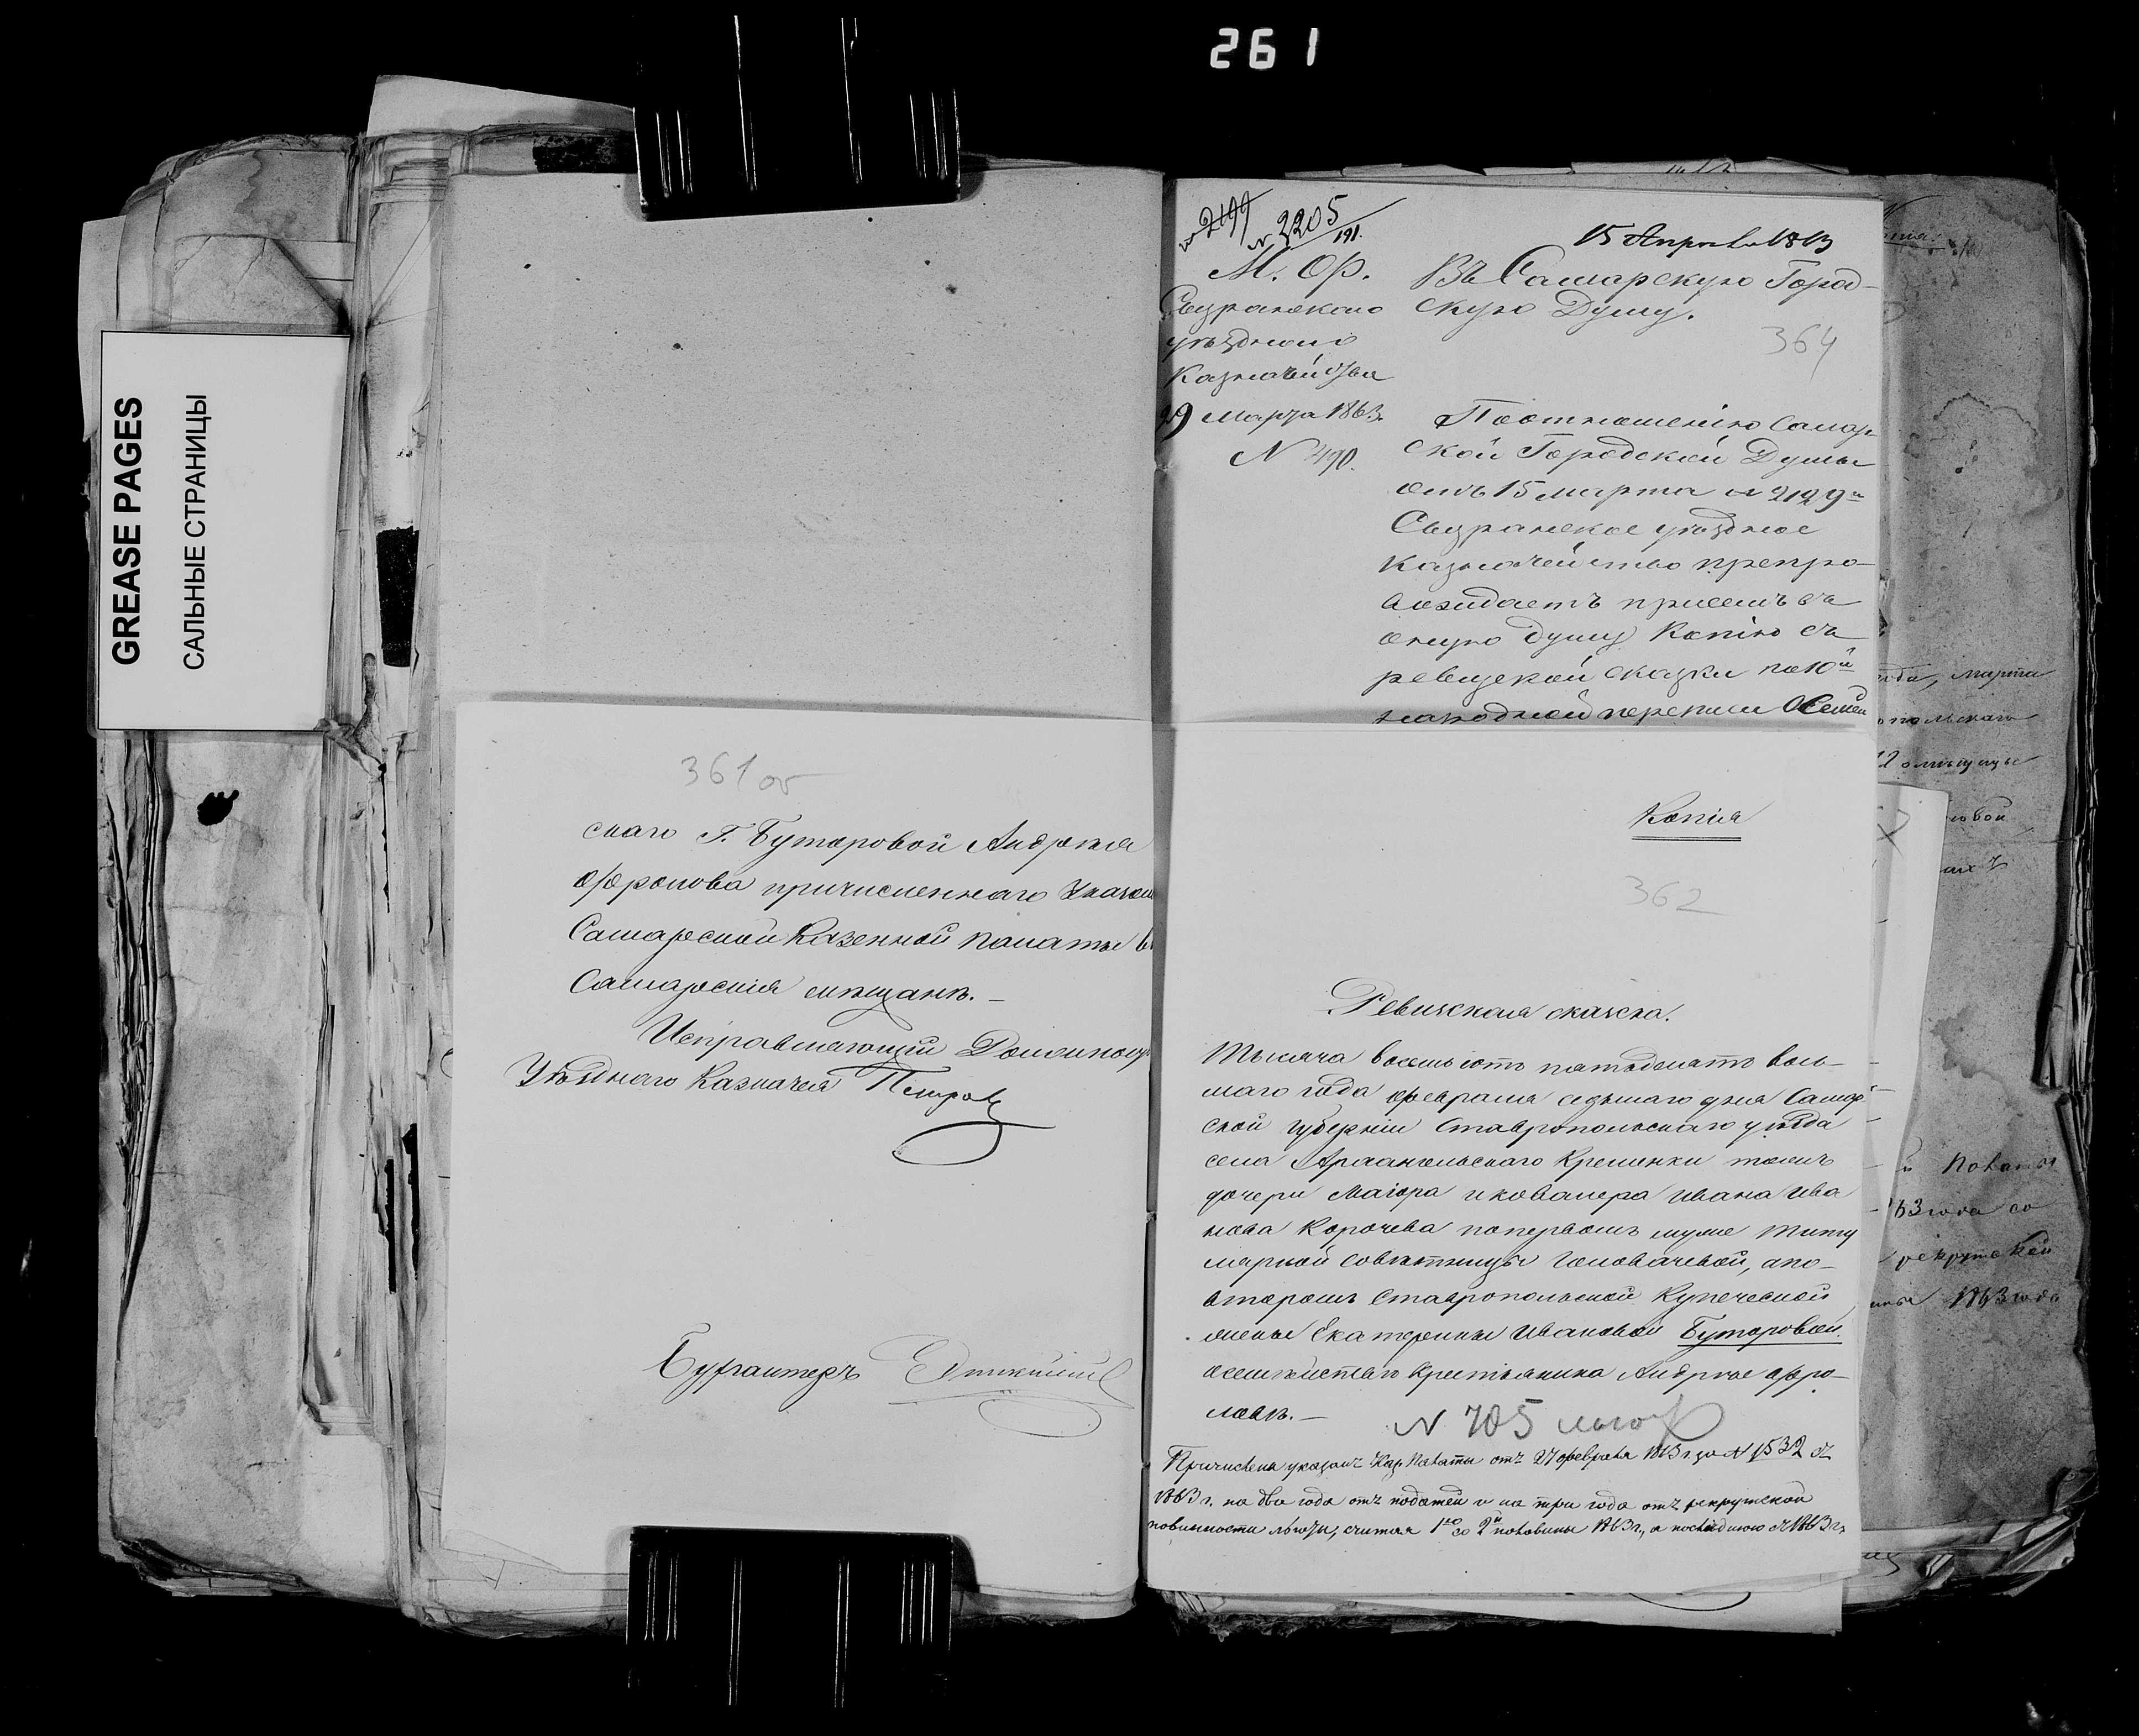 261
GREASE PAGES
САЛЬНЫЕ СТРАНИЦЫ
361 об
скаго Г. Буторовой Андрея
Фролова причисленнаго Указом
Самарской Казенной палаты в
Самарскія мещане. –
Исправляющій Должност
Уѣзднаго Казначея Петров
Бухгалтеръ
№ 2199
№ 2205
191.
15 Апреля 1863
М. Ф.
Сызранскаго
уѣзднаго
Казначейства
29 Марта 1863.
N 490.
Въ Самарскую Город-
скую Думу.
364
По отношенію Самар
ской Городской Думы
отъ 15 марта № 2129
Сызранское уѣздное
казначейство препро-
вождаетъ присемъ въ
оную думу Копію съ
ревизской сказки по 10й
народной переписи О Семей
Копія
362
Ревизская сказка.
Тысяча восемьсотъ пятьдесятъ вось-
маго года февраля седьмаго дня Самар-
ской губерніи Ставропольскаго уѣзда
села Архангельскаго Кременки тожъ
дочери Маіора и кавалера Ивана Ива
нова Корочева попервомъ муже титу
лярной совѣтницы Головачевой, апо-
второмъ Ставропольской Купеческой
жены Екатерины Ивановой Буторовой
осемействѣ крестьянина Андрѣе Фро-
ловѣ. –
N 705 льгот
Причисленъ указомъ Каз. Палаты отъ 27 февраля 1863 г. за № 1532 съ
1863 г. на два года отъ податей и на три года отъ рекрутской
повинности льготы, считая 1ю со 2й половины 1863 г., а последнюю съ 1863 г.
марта
рекрутской
1863 года